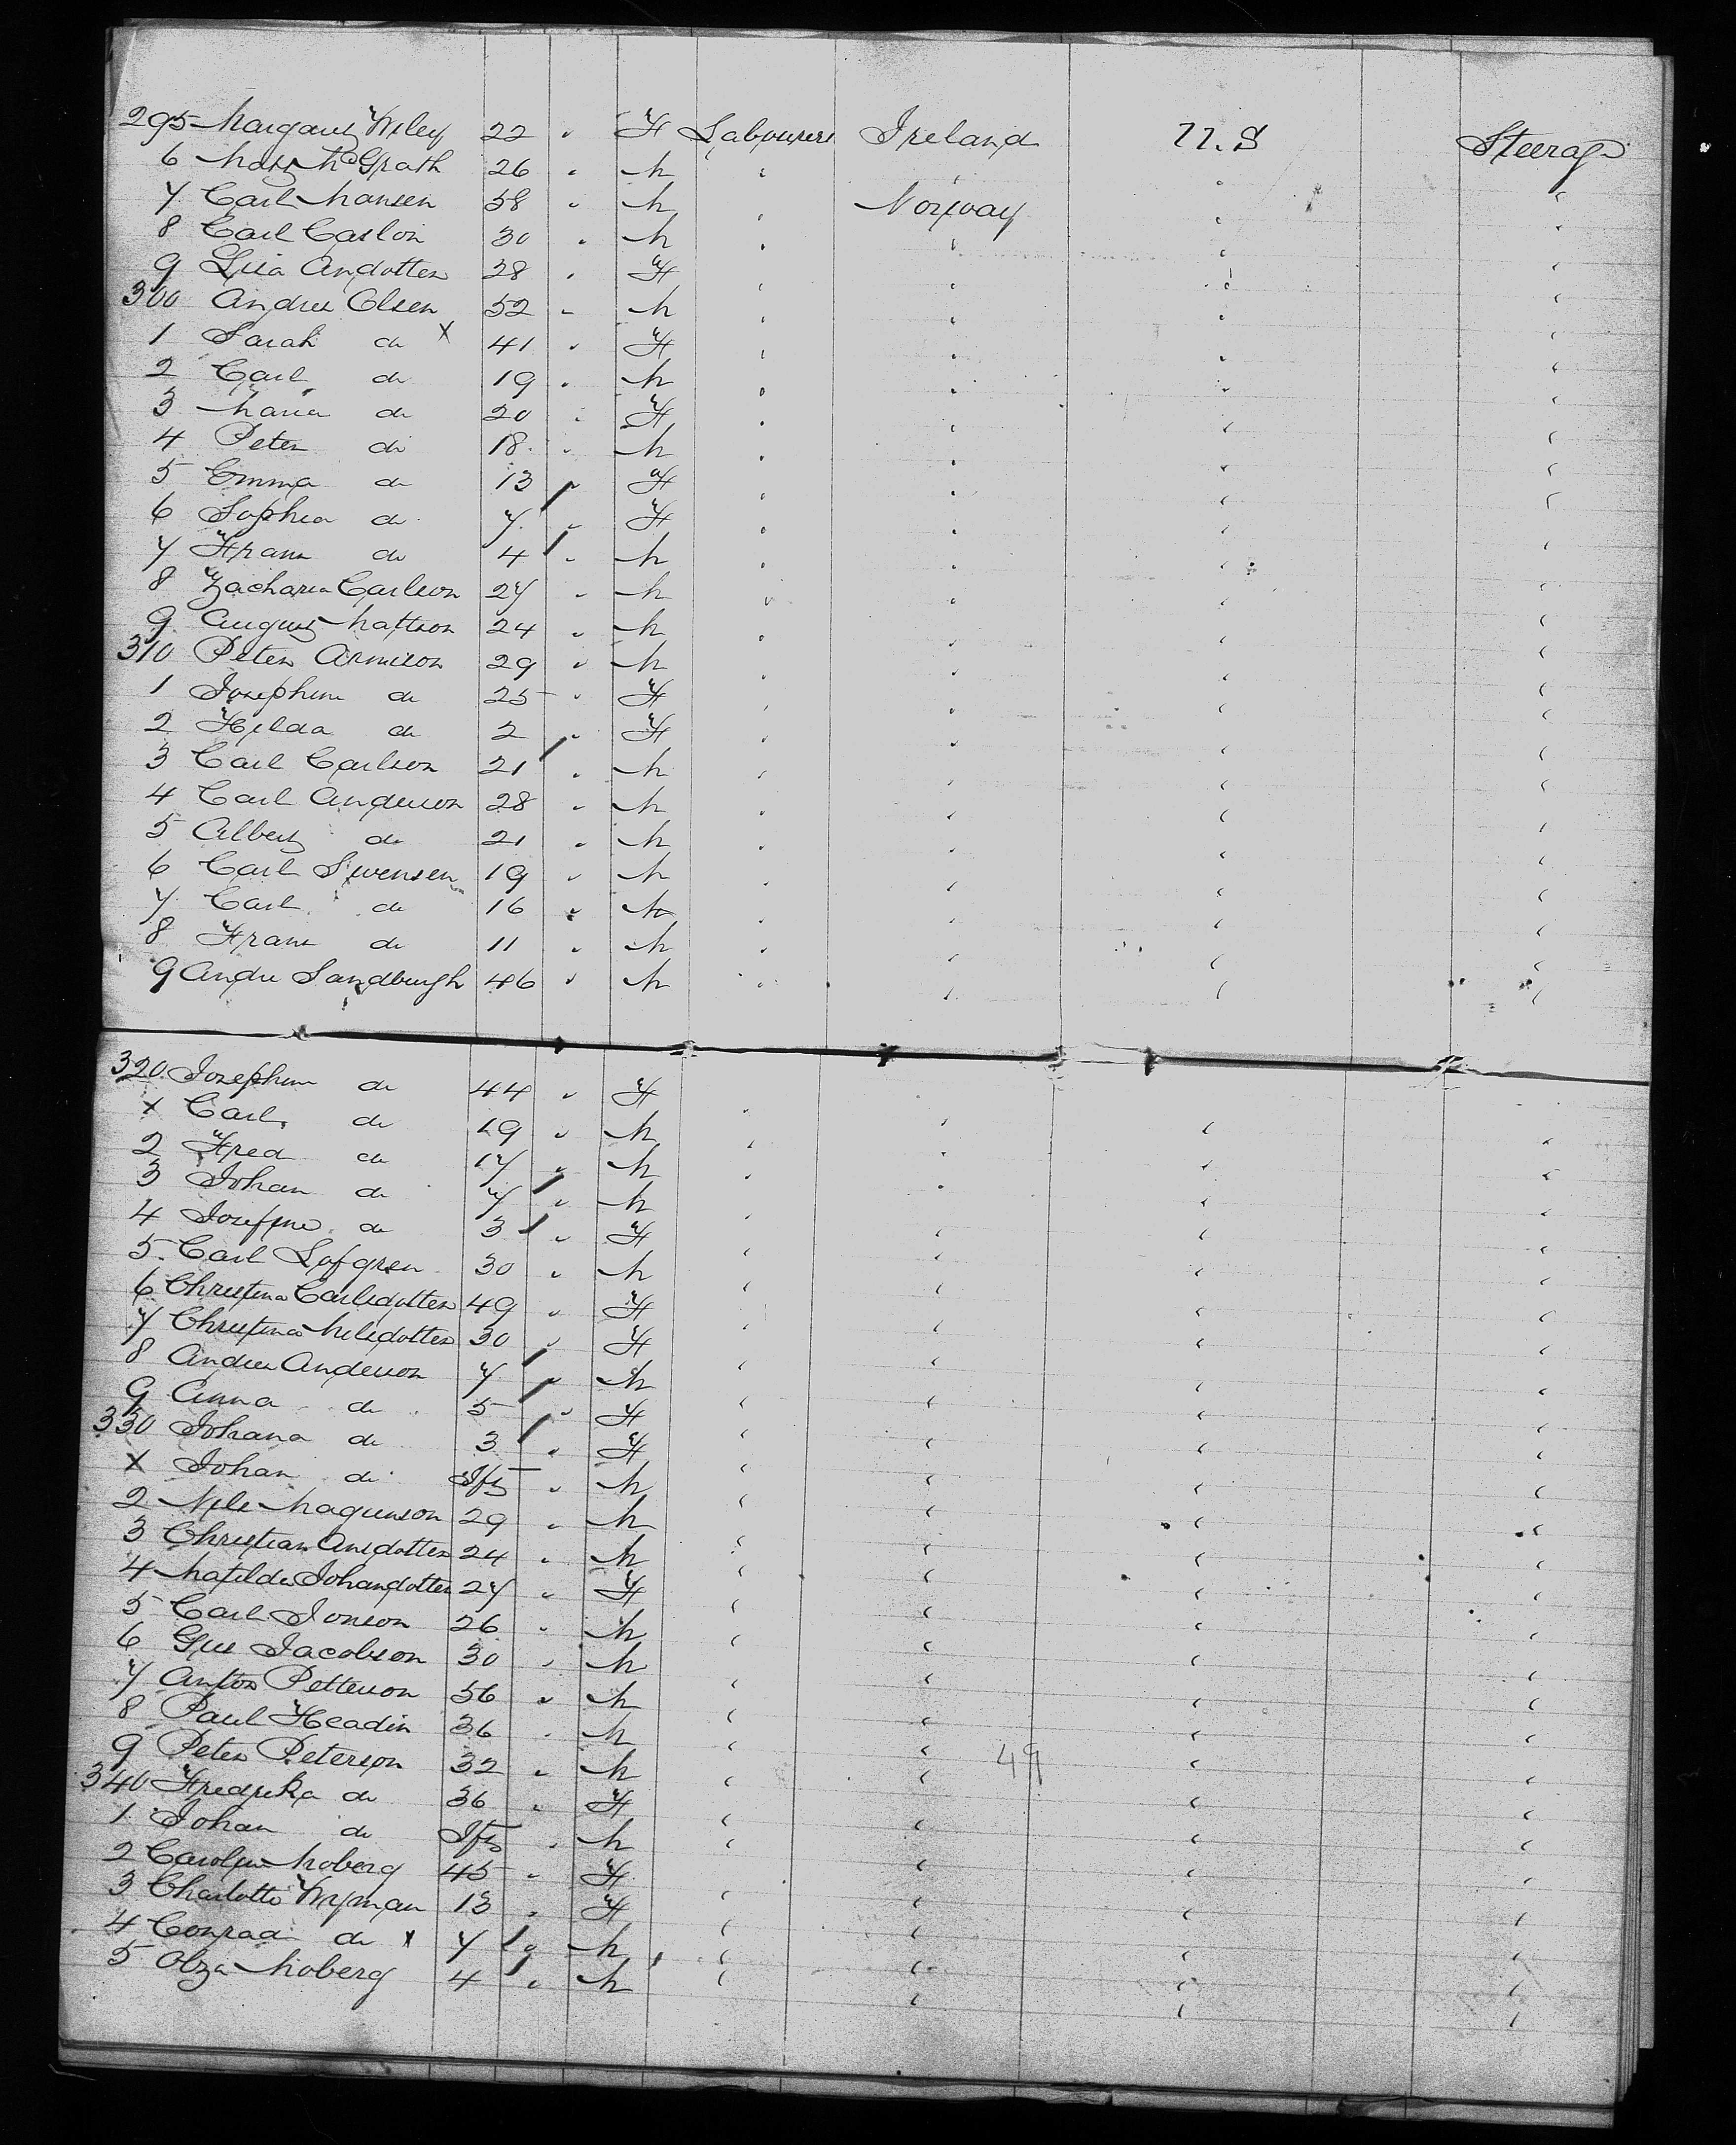 295 Margaret Wiley 22 " F Labourers Ireland U.S Steerage
6 Mary McGrath 26 " M " " " "
7 Carl Hansen 58 " M " Norway " "
8 Carl Carlson 30 " M " " " "
9 Lisa Andotter 28 " F " " " "
300 Andres Olsen 52 " M " " " "
1 Sarah do X 41 " F " " " "
2 Carl do 19 " M " " " "
3 Maria do 20 " F " " " "
4 Peter do 18 " M " " " "
5 Emma do 13 " F " " " "
6 Sophia do 7 " F " " " "
7 Frans do 4 " M " " " "
8 Zacharia Carlson 27 " M " " " "
9 August Mattson 24 " M " " " "
310 Peter Arnison 29 " M " " " "
1 Josephine do 25 " F " " " "
2 Hilda do 2 " F " " " "
3 Carl Carlson 21 " M " " " "
4 Carl Anderson 28 " M " " " "
5 Albert do 21 " M " " " "
6 Carl Swensen 19 " M " " " "
7 Carl do 16 " M " " " "
8 Frans do 11 " M " " " "
9 Andre Sandburgh 46 " M " " " "
320 Josephine do 44 " F " " " "
X Carl do 19 " M " " " "
2 Fred do 17 " M " " " "
3 Johan do 7 " M " " " "
4 Josefine do 3 " F " " " "
5 Carl Lofgren 30 " M " " " "
6 Christina Carlsdotter 49 " F " " " "
7 Christina Nilsdotter 30 " F " " " "
8 Andres Anderson 7 " M " " " "
9 Anna do 5 " F " " " "
330 Johana do 3 " F " " " "
X Johan do Ift " M " " " "
2 Nils Magunson 29 " M " " " "
3 Christian Ansdotter 24 " M " " " "
4 Matilda Johandotter 27 " F " " " "
5 Carl Jonson 26 " M " " " "
6 Gus Jacobson 30 " M " " " "
7 Anton Petterson 56 " M " " " "
8 Paul Headin 36 " M " " " "
9 Peter Peterson 32 " M " " 49 " "
340 Fredrika do 36 " F " " " "
1 Johan do Ift " M " " " "
2 Caroline Moberg 45 " F " " " "
3 Charlotte Wyman 13 " F " " " "
4 Conrad do X 7 " M " " " "
5 Olga Moberg 4 " M " " " "